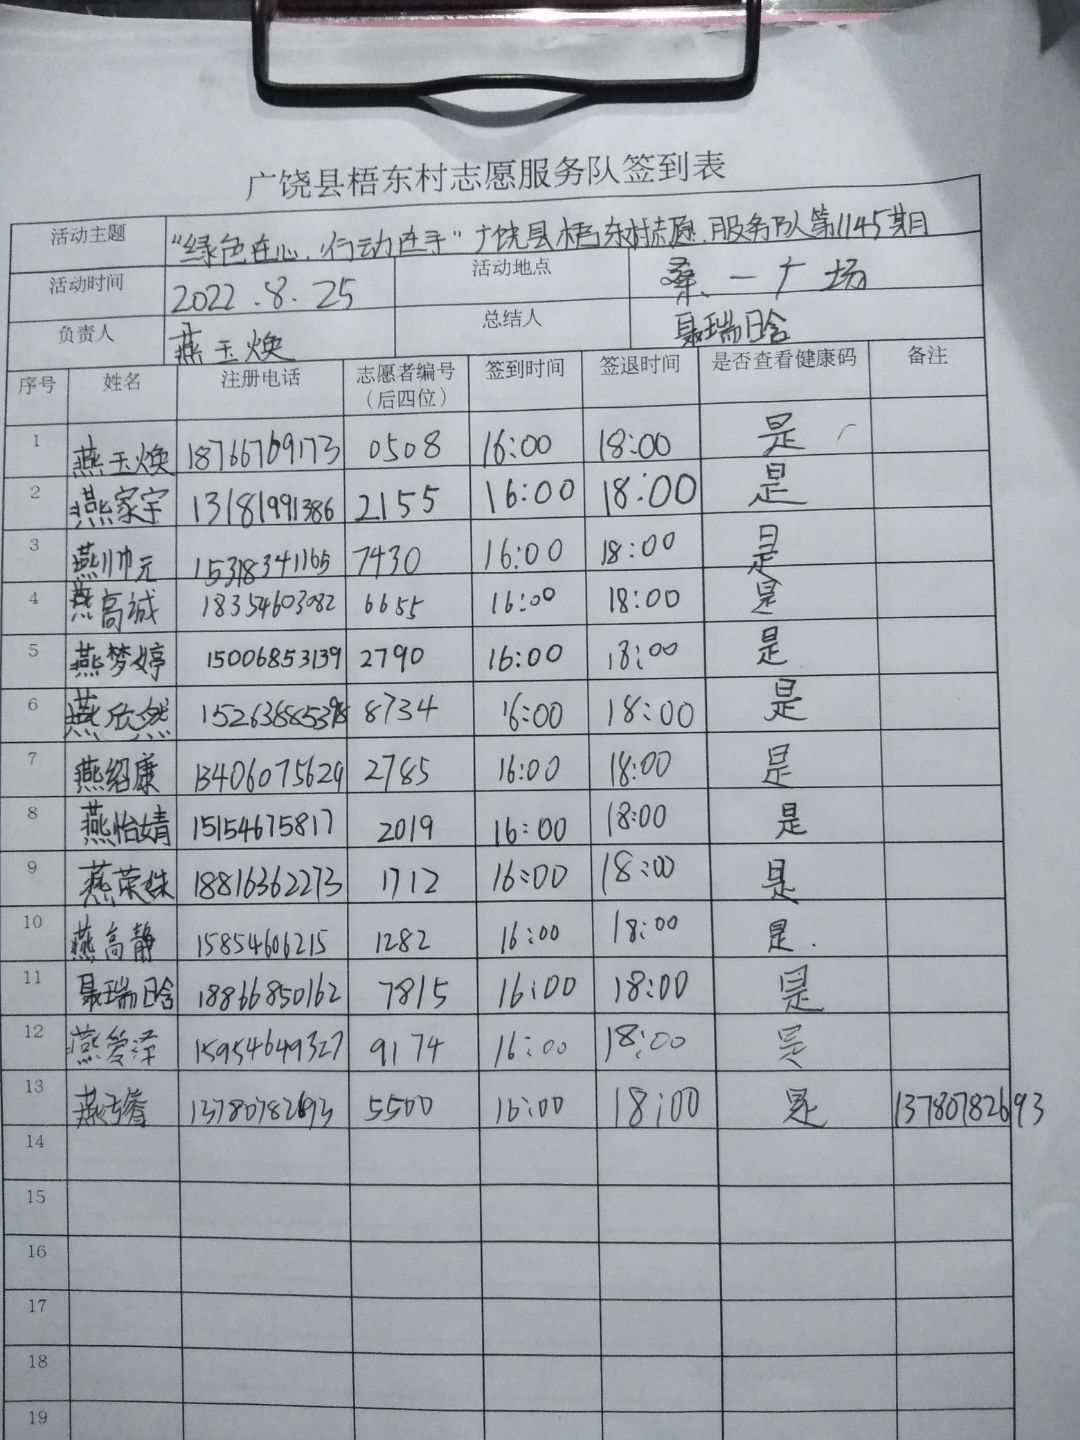 广饶县梧东村志愿服务队签到表
活动主题 “绿色在心,行动在手”广饶县梧东村志愿服务队第1145期
活动时间 2022.8.25 活动地点 桑一广场
负责人 燕玉焕 总结人 聂瑞晗
序号 姓名 注册电话 志愿者编号(后四位) 签到时间 签退时间 是否查看健康码 备注
1 燕玉焕 18766769173 0508 16:00 18:00 是
2 燕家宇 13181991386 2155 16:00 18:00 是
3 燕帅元 15318341165 7430 16:00 18:00 是
4 燕高诚 18354603082 6655 16:00 18:00 是
5 燕梦婷 15006853139 2790 16:00 18:00 是
6 燕欣然 8734 16:00 18:00 是
7 燕绍康 13406075629 2785 16:00 18:00 是
8 燕怡婧 15154675817 2019 16:00 18:00 是
9 燕荣姝 18816362273 1712 16:00 18:00 是
10 燕高静 15854606215 1282 16:00 18:00 是.
11 聂瑞晗 18866850162 7815 16:00 18:00 是
12 燕爱泽 15954649327 9174 16:00 18:00 是
13 燕 13780782693 5500 16:00 18:00 是 13780782693
14
15
16
17
18
19